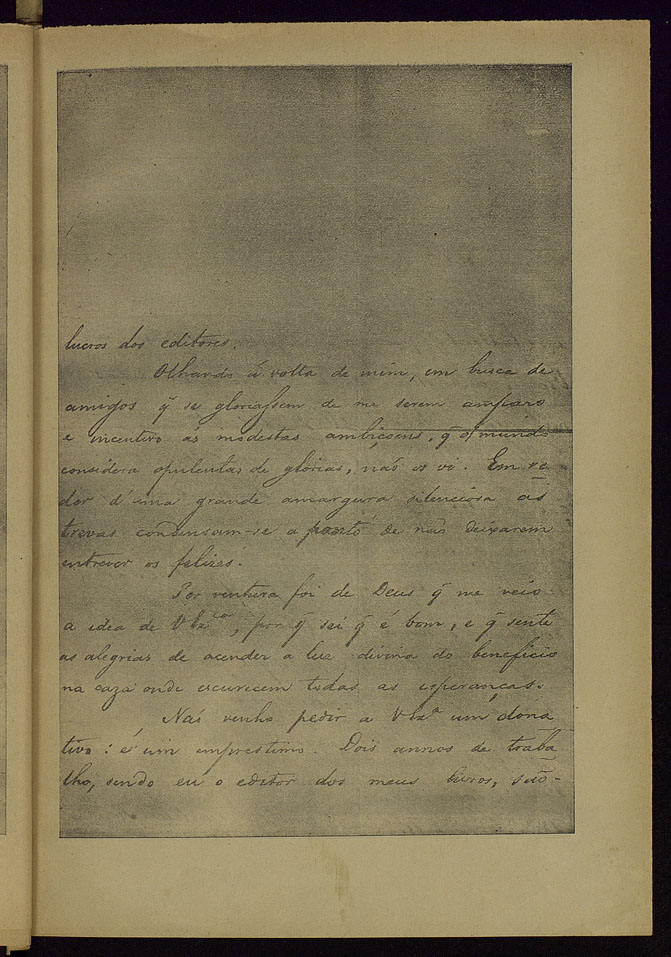 lucros dos editores.
Olhando á volta de mim, em busca de
amigos q̃ se gloriassem de me serem amparo
e incentivo ás modestas ambiçoens, q̃ o mundo
considera opulentas de glorias, não os vi. Em re
dor d'uma grande amargura silenciosa as
trevas condensam-se a ponto de não deixarem
entrever os felizes.
Por ventura foi de Deus q̃ me veio
a idea de V Ex.cia, por q̃ sei q̃ é bom, e q̃ sente
as alegrias de acender a luz divina do beneficio
na caza onde escurecem todas as esperanças.
Não venho pedir a V Ex.a um dona
tivo: é um emprestimo. Dois annos de traba
lho, sendo eu o editor dos meus livros, são-